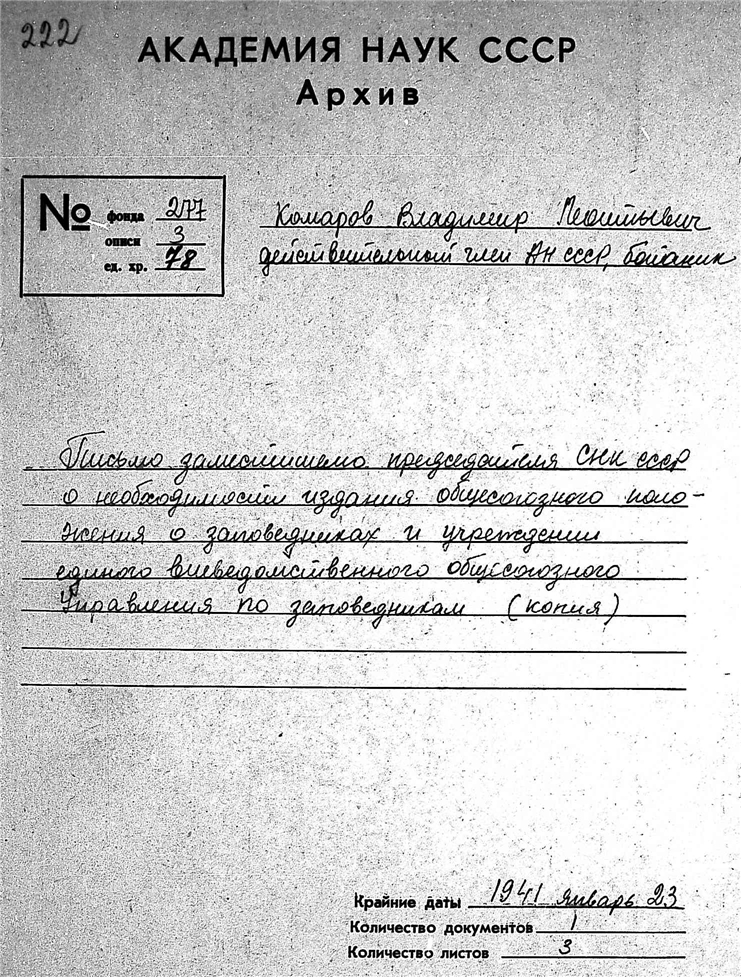 222
АКАДЕМИЯ НАУК СССР
Архив
№ фонда 277
описи 3
ед. хр. 78
Комаров Владимир Леонтьевич
действительный член АН СССР, ботаник
Письмо заместителю председателя СНК СССР
о необходимости издания общесоюзного поло-
жения о заповедниках и учреждении
единого вневедомственного общесоюзного
Управления по заповедникам (копия)
Крайние даты 1941 январь 23
Количество документов 1
Количество листов 3